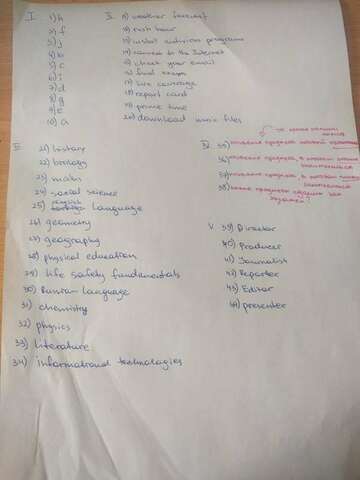 I
1) h
2) f
3) j
4) b
5) c
6) i
7) d
8) g
9) e
10) a
II
11) weather forecast
12) rush hour
13) install antivirus programs
14) connect to the Internet
15) check your email
16) final exams
17) live coverage
18) report card
19) prime time
20) download music files
III
21) history
22) biology
23) maths
24) social science
25) English language
26) geometry
27) geography
28) physical education
29) life safety fundamentals
30) Russian language
31) chemistry
32) physics
33) literature
34) informational technologies
IV
35) название предмета который
36) название предмета, в котором
37) название предмета, в котором
38) какие предметы сдавали
V
39) Director
40) Producer
41) Journalist
42) Reporter
43) Editor
44) presenter